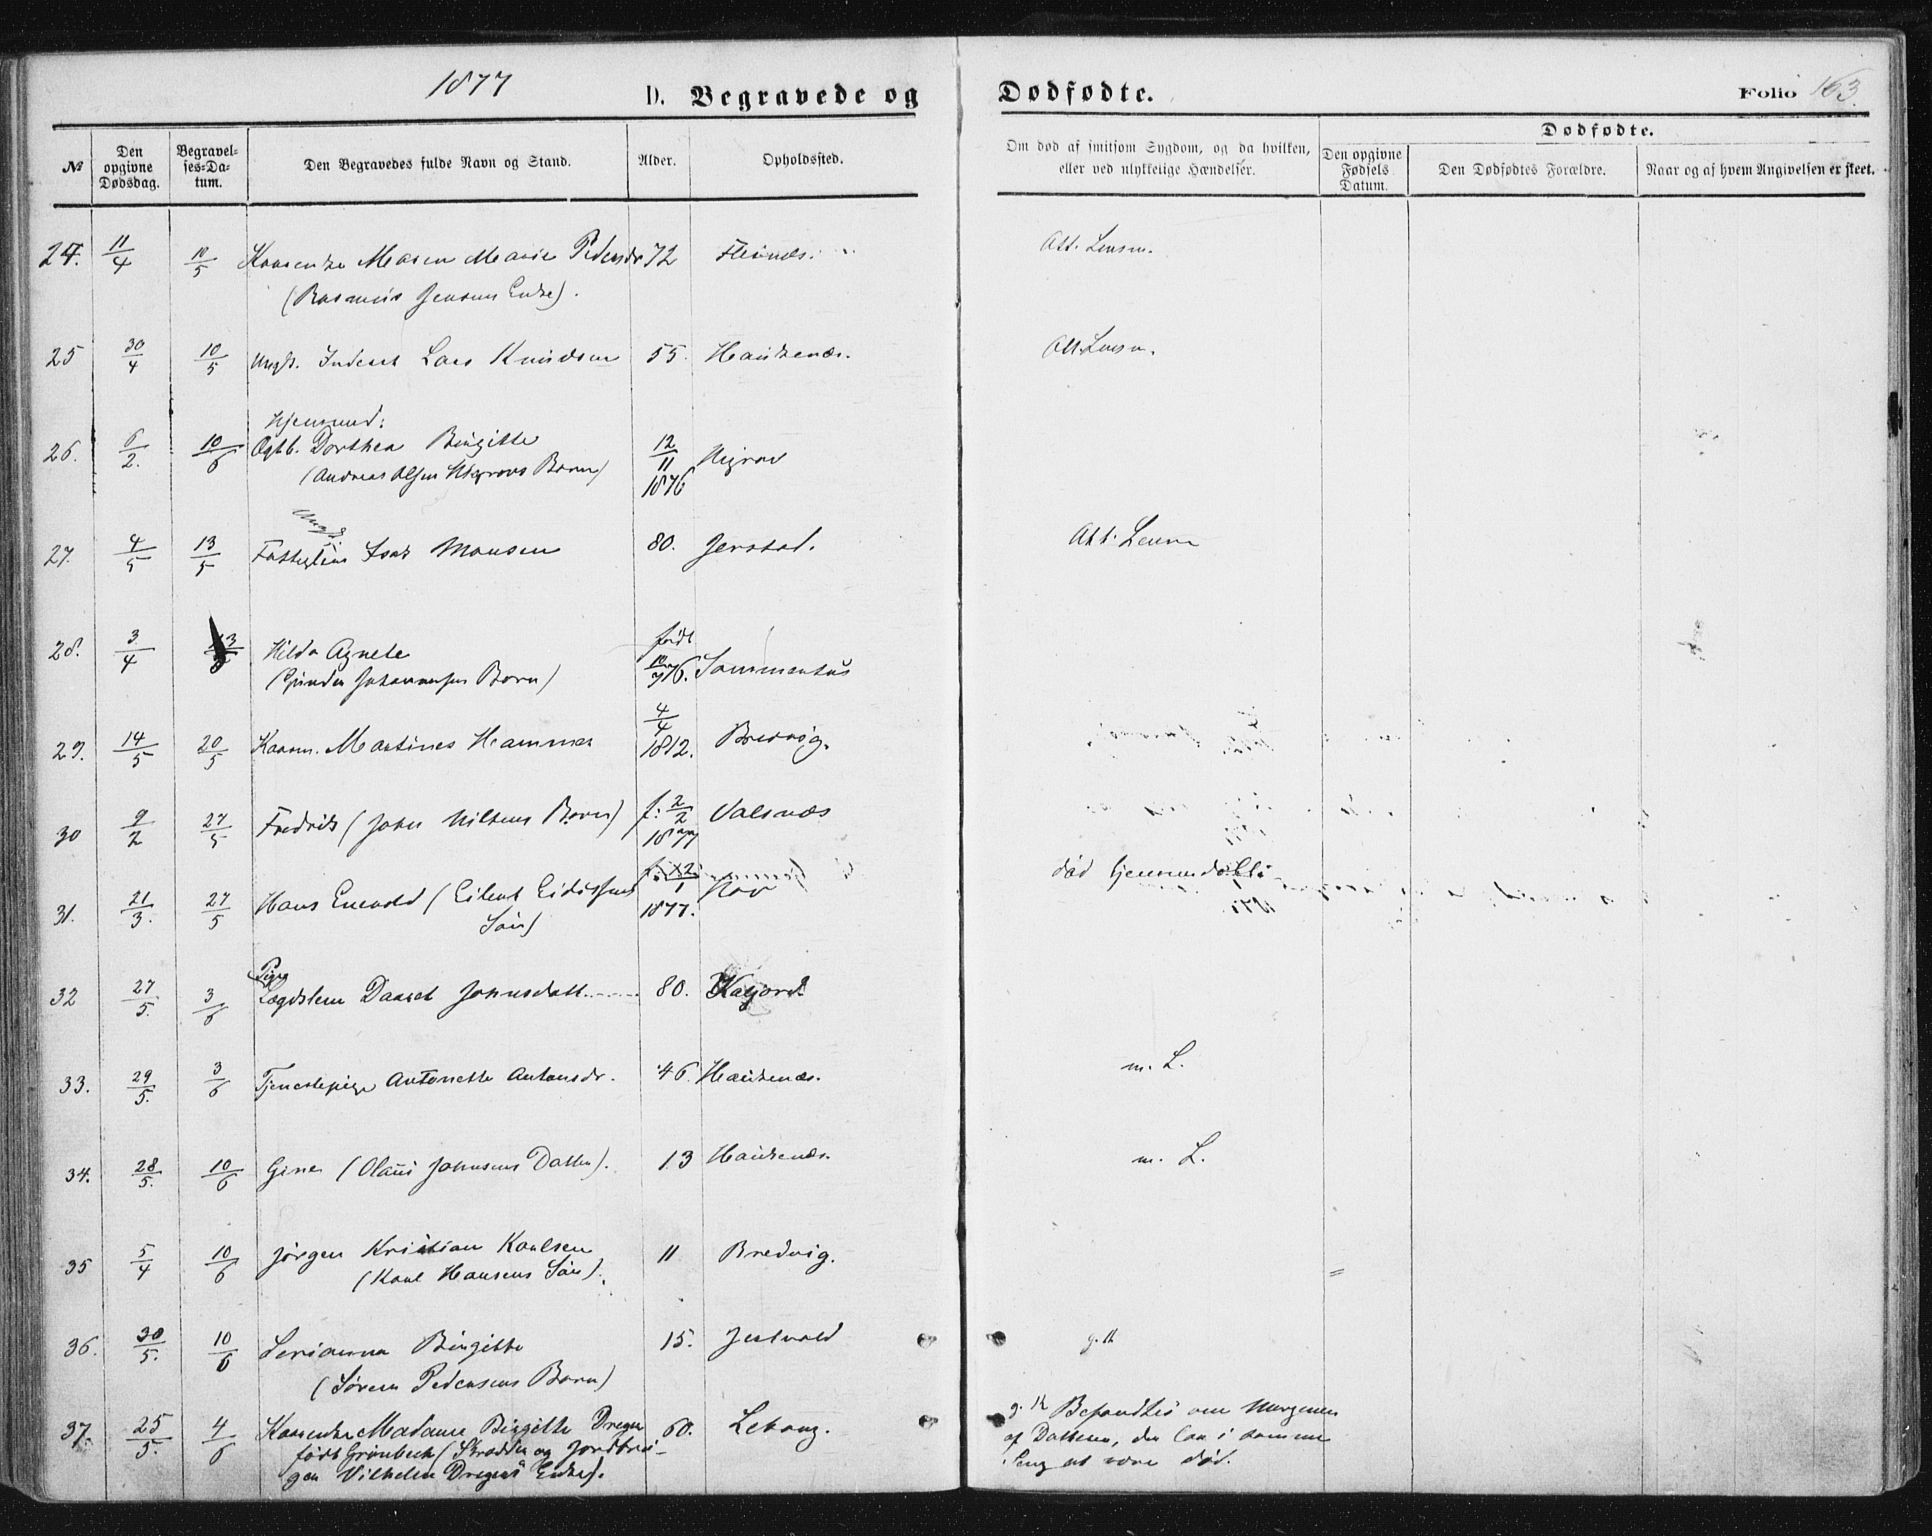 1877
D. Begravede og
Dødfødte.
Folio 163.
№
Den opgivne Dødsdag.
Begravelses-Datum.
Den Begravedes fulde Navn og Stand.
Alder.
Opholdssted.
Om død af smitsom Sygdom, og da hvilken, eller ved ulykkelige Hændelser.
Dødfødte.
Den opgivne Fødsels Datum.
Den Dødfødtes Forældre.
Naar og af hvem Angivelsen er skeet.
24. 11/4 10/5 Maren Marie Pedersdr 72 Steines. Att. Lensm.
(Rasmus Jensens Enke).
25 30/4 10/5 Ungk. Inderst Lars Knudsen 55. Haukenæs. Att. Lensm.
Hjemmed:
26. 6/2. 10/6 Ægtb. Dorthea Birgitte 12/11 1876
(Andreas Olsen Barn)
Ungk.
27. 4/5 13/5 Isak Monsen 80. Jerstad. Att. Lensm
28. 3/4 Hilda Agnete født 10/7 76.
(Johannesens Barn)
29. 14/5 20/5 Kaarm. Martines Hammer 4/4 1812. Bredvig.
30 9/2 27/5 Fredrik (John Nilsens Barn) f. 2/2 1877 Valsnæs
31. 21/3. 27/5 Hans Enevold (Eilert Eidissens 1877. død hjemmedøbt
Søn)
Pige
32 27/5. 3/6 Lægdslem Daaret Johnsdatt. 80. Kafjord
33. 29/5. 3/6 Tjenestepige Antonette Antonsdr. 46. Haukenæs. m. L.
34. 28/5. 10/6 Gine (Olaus Johnsens Datter). 13 Haukenæs. m. L.
35 5/4 10/6 Jørgen Kristian Kaulsen 11 Bredvig.
(Kaul Hansens Søn).
36. 30/5. 10/6 Serianna Birgitte 15. Jestvold
(Søren Pedersens Barn)
37. 25/5. 4/6 Madame Birgitte Dreyer 60. Lekang. Befandtes om Morgenen
født Grønbech (Skrædder og Jordbru- af Datteren, der laa i samme
gen Vilhelm Dreyers Enke). Seng at være død.